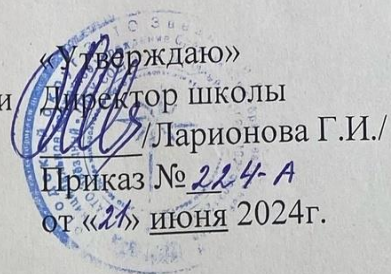 «Утверждаю»
и Директор школы
/Ларионова Г.И./
Приказ № 224-А
от «21» июня 2024г.